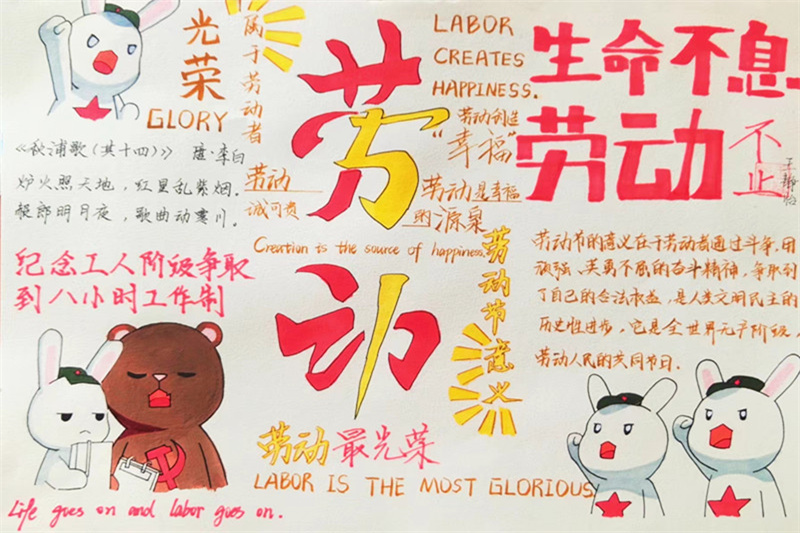 光荣
GLORY
属于劳动者
劳动
LABOR
CREATES
HAPPINESS.
劳动创造
“幸福”
生命不息
劳动
不止
《秋浦歌(其十四)》 唐·李白
炉火照天地,红星乱紫烟。
赧郎明月夜,歌曲动寒川。
劳动
诚可贵
劳动是幸福
的源泉
Creation is the source of happiness.
纪念工人阶级争取
到八小时工作制
劳动节意义
劳动节的意义在于劳动者通过斗争,团
顽强、英勇不屈的奋斗精神,争取到
了自己的合法权益,是人类文明民主的
历史性进步,它是全世界无产阶级,
劳动人民的共同节日.
劳动最光荣
LABOR IS THE MOST GLORIOUS
Life goes on and labor goes on.